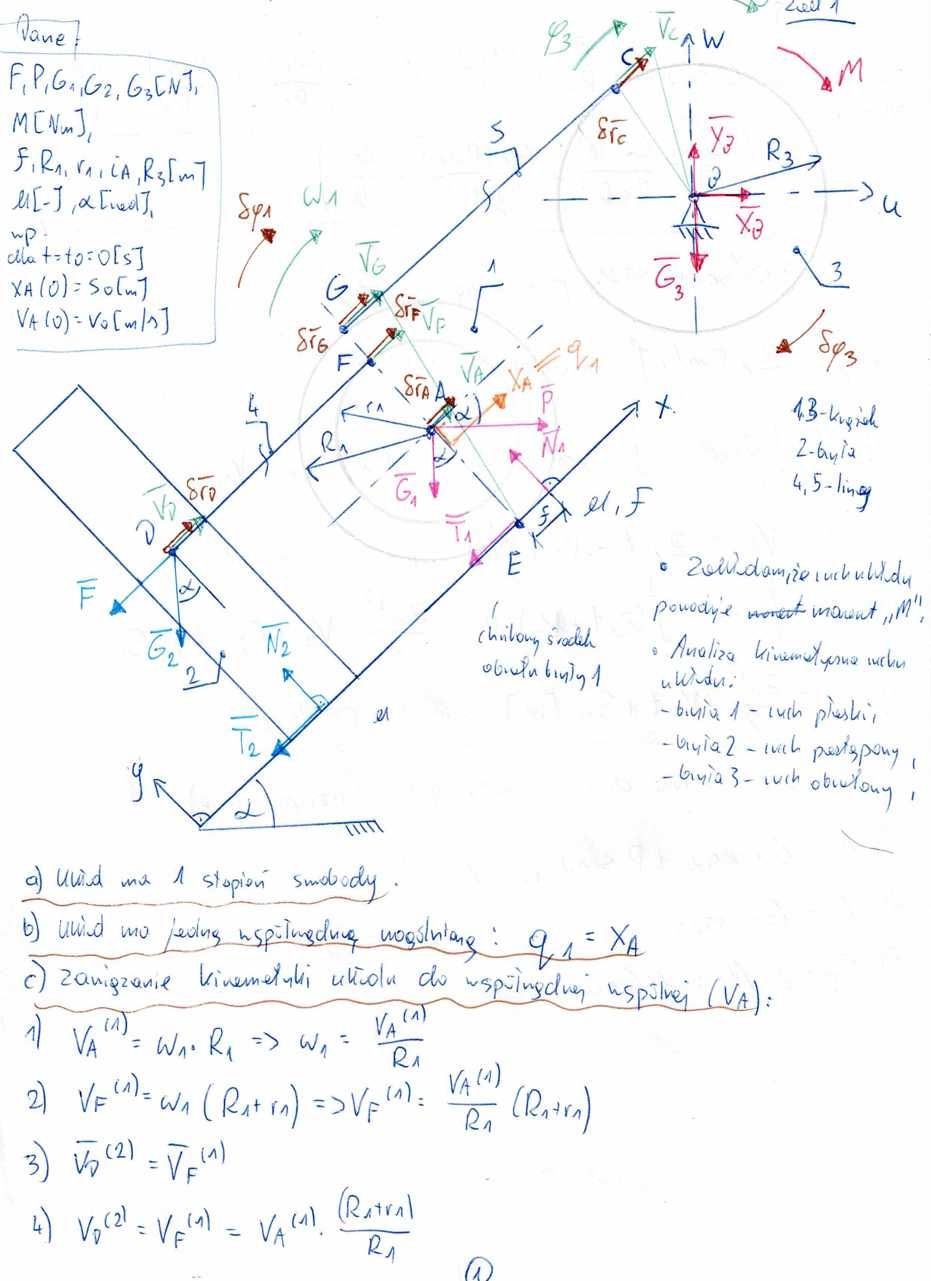 Dane:
F, P, G1, G2, G3 [N],
M [Nm],
f, R1, r1, iA, R3 [m]
μ [-], α [rad],
wp.
dla t=t0=0[s]
XA(0) = S0 [m]
VA(0) = V0 [m/s]
φ3
C
V̄C
W
M
δr̄C
5
ȲB
R3
B
X̄B
u
Ḡ3
3
δφ3
δφ1
ω1
G
V̄G
1
δr̄G
δr̄F
V̄F
F
δr̄A
A
V̄A
XA = q1
α
P̄
4
r1
R1
α
Ḡ1
N̄1
x
T̄1
f
μ, f
E
1,3-krążek
2-bryła
4,5-liny
V̄D
δr̄D
D
F̄
α
Ḡ2
2
N̄2
T̄2
μ
y
α
chwilowy środek
obrotu bryły 1
• Zakładam, że ruch układu
powoduje moment „M",
• Analiza kinematyczna ruchu
układu:
- bryła 1 - ruch płaski,
- bryła 2 - ruch postępowy,
- bryła 3 - ruch obrotowy,
a) Układ ma 1 stopień swobody.
b) Układ ma jedną współrzędną uogólnioną: q1 = XA
c) Związanie kinematyki układu do współrzędnej wspólnej (VA):
1) VA(1) = ω1 · R1 => ω1 = VA(1)/R1
2) VF(1) = ω1 (R1+r1) => VF(1) = VA(1)/R1 (R1+r1)
3) V̄D(2) = V̄F(1)
4) VD(2) = VF(1) = VA(1) · (R1+r1)/R1
1